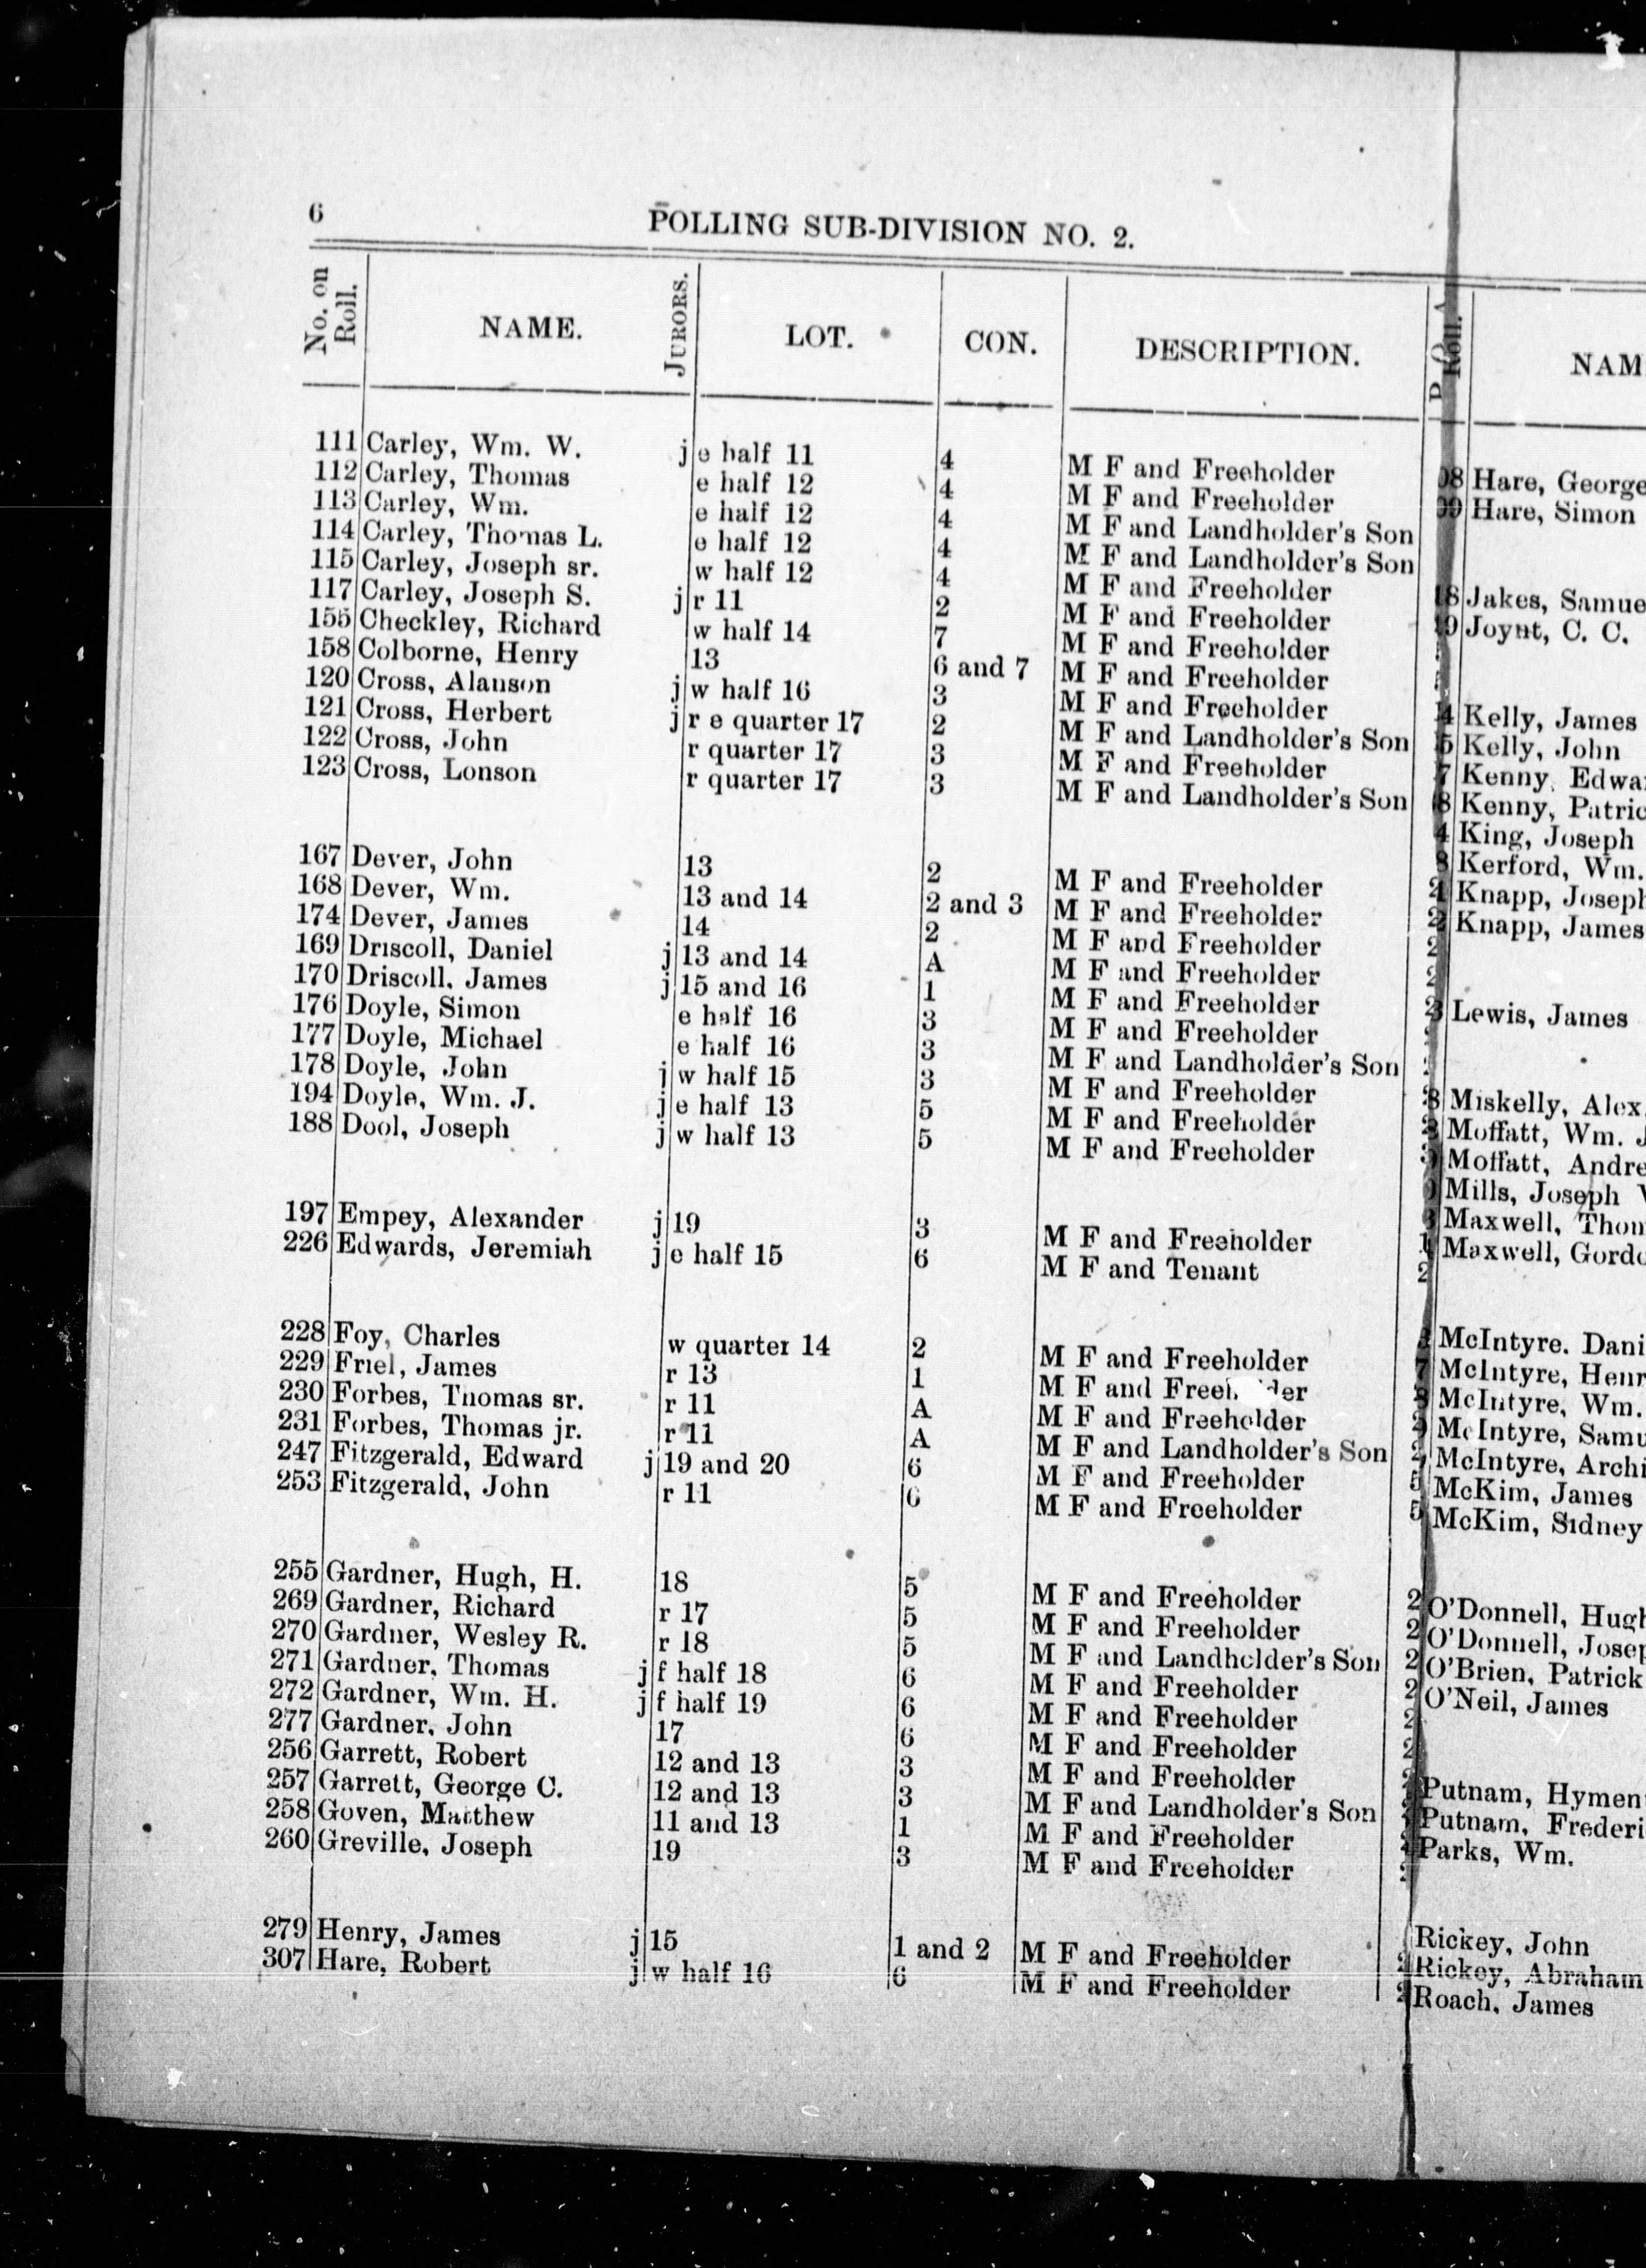 6
POLLING SUB-DIVISION NO. 2.
No. on Roll. NAME. JURORS. LOT. CON. DESCRIPTION.
111 Carley, Wm. W. j e half 11 4 M F and Freeholder
112 Carley, Thomas e half 12 4 M F and Freeholder
113 Carley, Wm. e half 12 4 M F and Landholder's Son
114 Carley, Thomas L. e half 12 4 M F and Landholder's Son
115 Carley, Joseph sr. w half 12 4 M F and Freeholder
117 Carley, Joseph S. j r 11 2 M F and Freeholder
155 Checkley, Richard w half 14 7 M F and Freeholder
158 Colborne, Henry 13 6 and 7 M F and Freeholder
120 Cross, Alanson j w half 16 3 M F and Freeholder
121 Cross, Herbert j r e quarter 17 2 M F and Landholder's Son
122 Cross, John r quarter 17 3 M F and Freeholder
123 Cross, Lonson r quarter 17 3 M F and Landholder's Son
167 Dever, John 13 2 M F and Freeholder
168 Dever, Wm. 13 and 14 2 and 3 M F and Freeholder
174 Dever, James 14 2 M F and Freeholder
169 Driscoll, Daniel j 13 and 14 A M F and Freeholder
170 Driscoll, James j 15 and 16 1 M F and Freeholder
176 Doyle, Simon e half 16 3 M F and Freeholder
177 Doyle, Michael e half 16 3 M F and Landholder's Son
178 Doyle, John j w half 15 3 M F and Freeholder
194 Doyle, Wm. J. j e half 13 5 M F and Freeholder
188 Dool, Joseph j w half 13 5 M F and Freeholder
197 Empey, Alexander j 19 3 M F and Freeholder
226 Edwards, Jeremiah j e half 15 6 M F and Tenant
228 Foy, Charles w quarter 14 2 M F and Freeholder
229 Friel, James r 13 1 M F and Freeholder
230 Forbes, Thomas sr. r 11 A M F and Freeholder
231 Forbes, Thomas jr. r 11 A M F and Landholder's Son
247 Fitzgerald, Edward j 19 and 20 6 M F and Freeholder
253 Fitzgerald, John r 11 6 M F and Freeholder
255 Gardner, Hugh, H. 18 5 M F and Freeholder
269 Gardner, Richard r 17 5 M F and Freeholder
270 Gardner, Wesley R. r 18 5 M F and Landholder's Son
271 Gardner, Thomas j f half 18 6 M F and Freeholder
272 Gardner, Wm. H. j f half 19 6 M F and Freeholder
277 Gardner, John 17 6 M F and Freeholder
256 Garrett, Robert 12 and 13 3 M F and Freeholder
257 Garrett, George C. 12 and 13 3 M F and Landholder's Son
258 Goven, Matthew 11 and 13 1 M F and Freeholder
260 Greville, Joseph 19 3 M F and Freeholder
279 Henry, James j 15 1 and 2 M F and Freeholder
307 Hare, Robert j w half 16 6 M F and Freeholder
Roll. NAM
Hare, George
Hare, Simon
Jakes, Samue
Joynt, C. C.
Kelly, James
Kelly, John
Kenny, Edwa
Kenny, Patric
King, Joseph
Kerford, Wm.
Knapp, Joseph
Knapp, James
Lewis, James
Miskelly, Alex
Moffatt, Wm. J
Moffatt, Andre
Mills, Joseph
Maxwell, Thom
Maxwell, Gordo
McIntyre. Dani
McIntyre, Henr
McIntyre, Wm.
McIntyre, Samu
McIntyre, Archi
McKim, James
McKim, Sidney
O'Donnell, Hugh
O'Donnell, Josep
O'Brien, Patrick
O'Neil, James
Putnam, Hymen
Putnam, Frederi
Parks, Wm.
Rickey, John
Rickey, Abraham
Roach, James